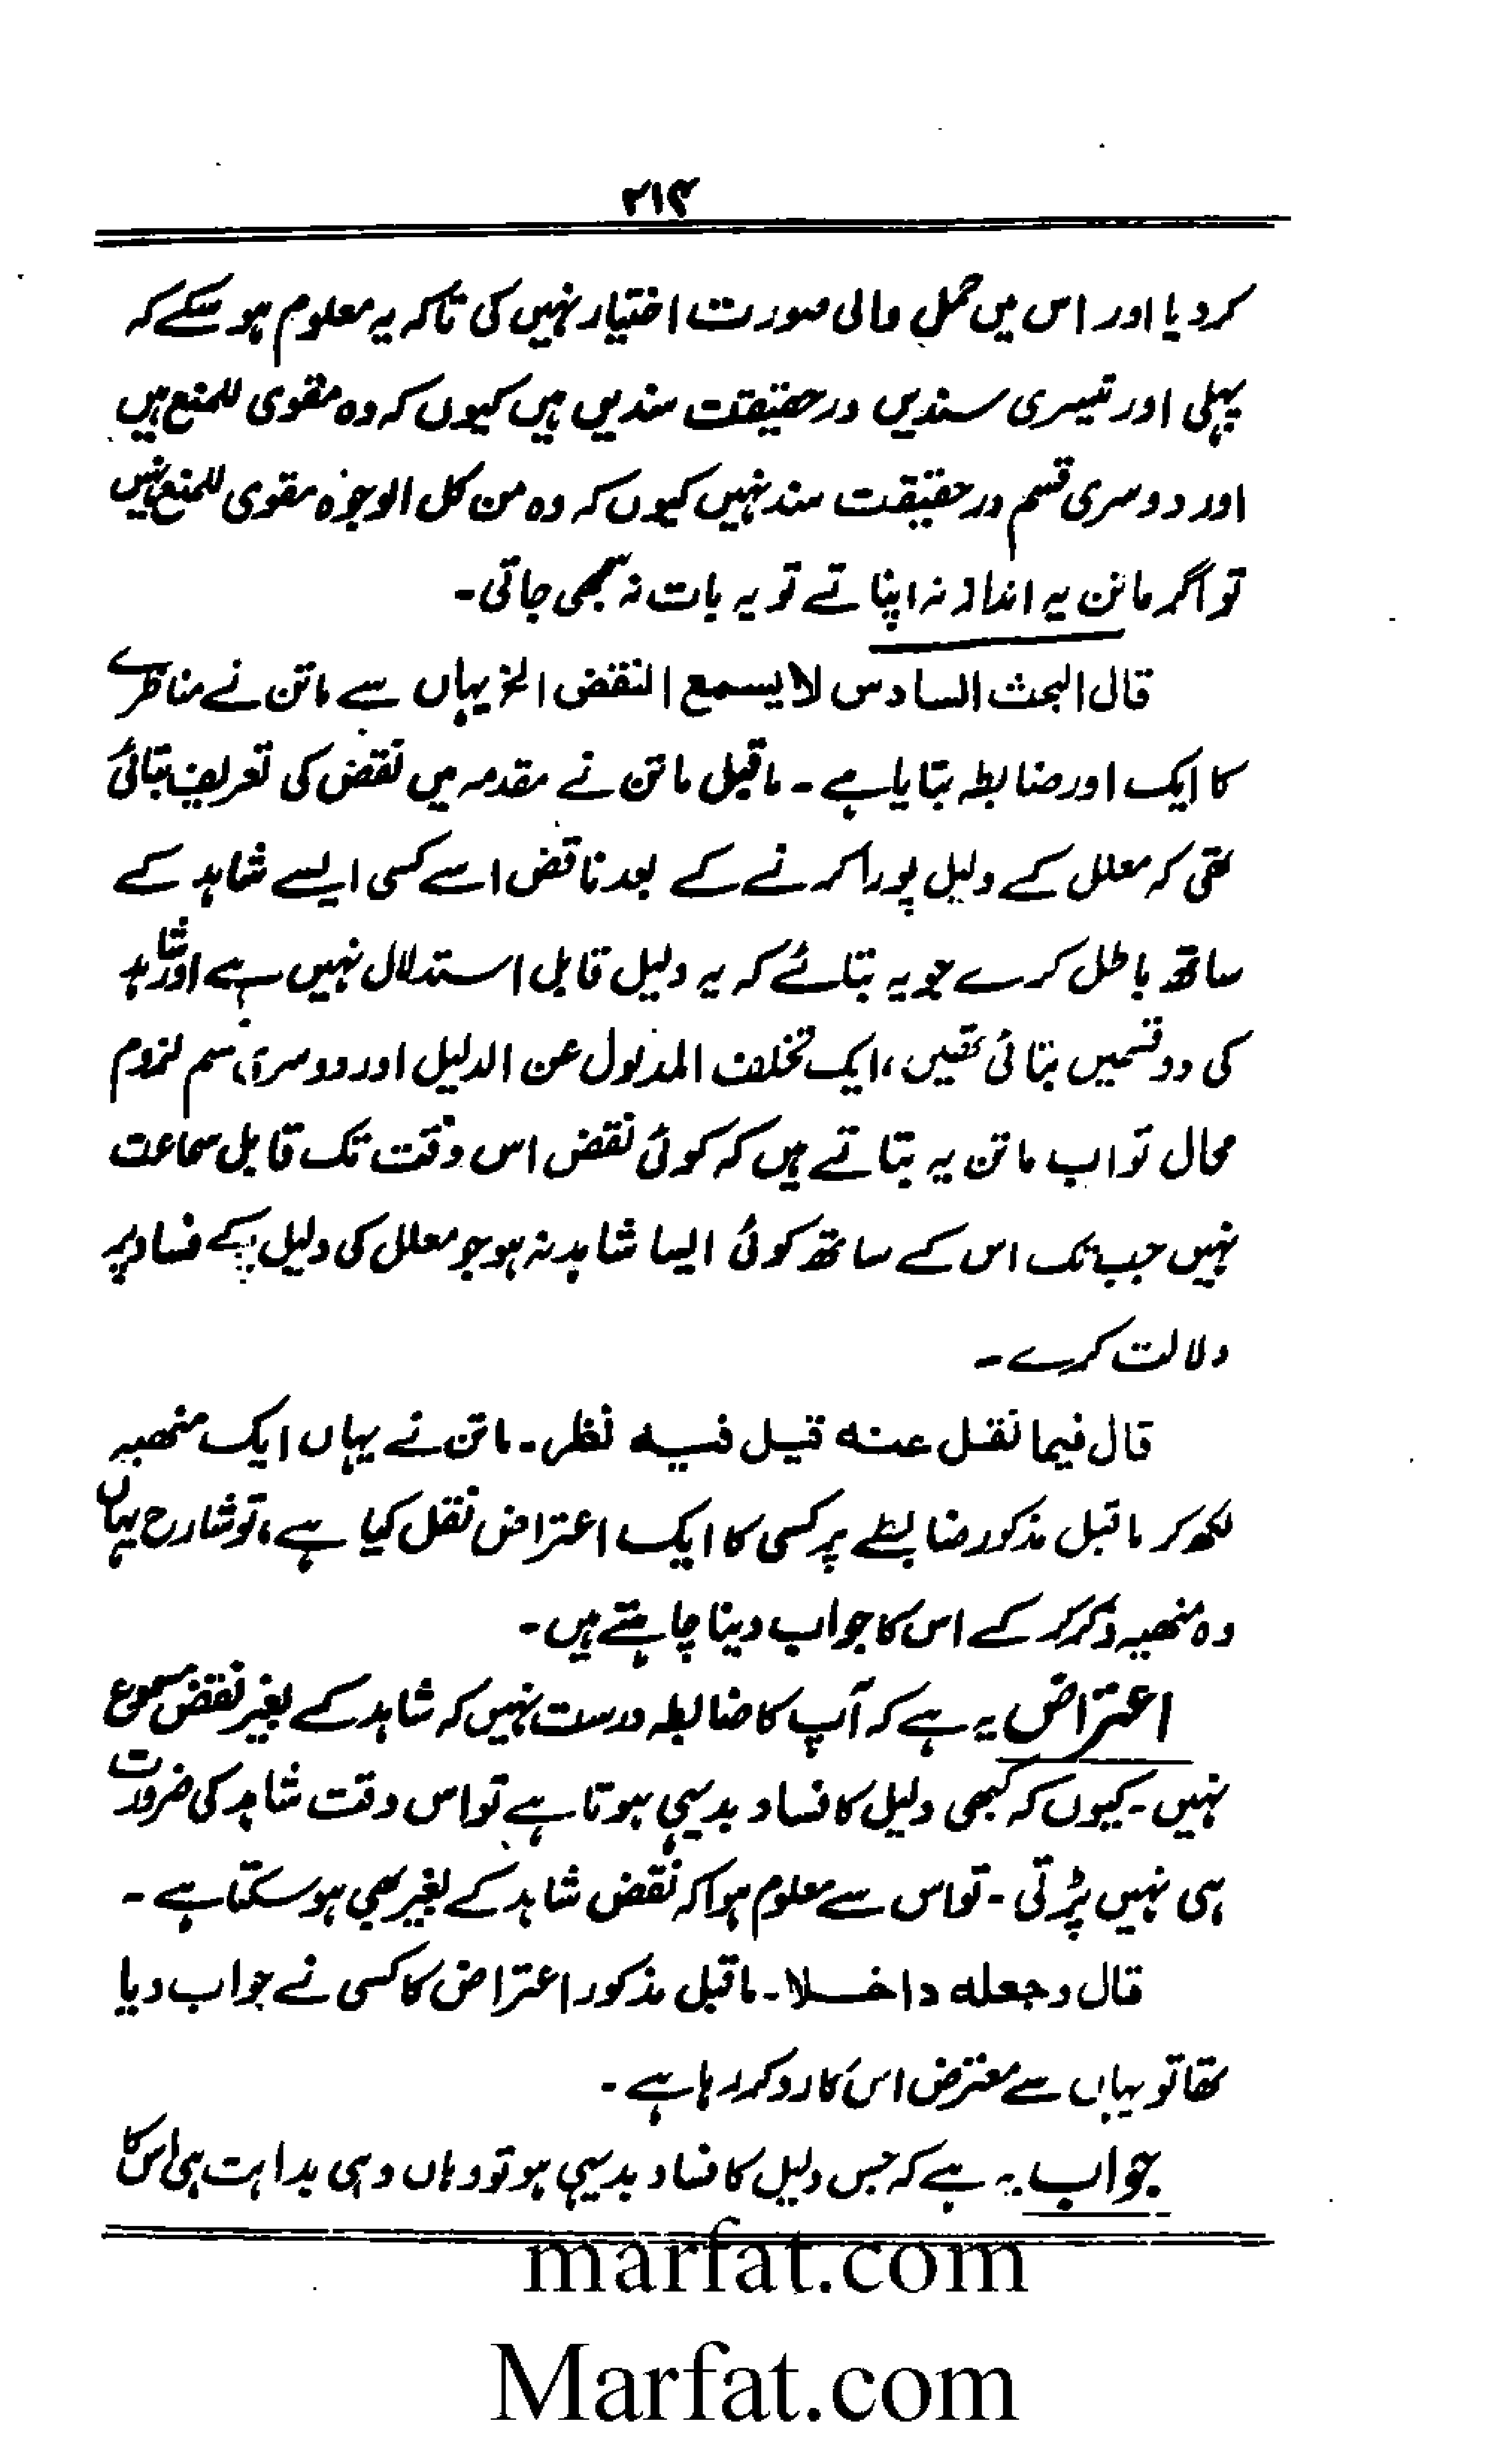 ۲۱۴
کردیا اور اس میں حمل والی صورت اختیار نہیں کی تاکہ یہ معلوم ہو سکے کہ
پہلی اور تیسری سندیں درحقیقت سندیں ہیں کیوں کہ وہ مقوی للمنع ہیں
اور دوسری قسم درحقیقت سند نہیں کیوں کہ وہ من کل الوجوہ مقوی للمنع نہیں
تو اگر ماتن یہ انداز نہ اپناتے تو یہ بات نہ سمجھی جاتی۔
قال البحث السادس لا یسمع النقض الخ یہاں سے ماتن نے مناظرے
کا ایک اور ضابطہ بتایا ہے۔ ماقبل ماتن نے مقدمہ میں نقض کی تعریف بتائی
تھی کہ معلل کے دلیل پورا کرنے کے بعد ناقض اسے کسی ایسے شاہد کے
ساتھ باطل کرے جو یہ بتائے کہ یہ دلیل قابل استدلال نہیں ہے اور شاہد
کی دو قسمیں بتائی تھیں، ایک تخلف المدلول عن الدلیل اور دوسری قسم لزوم
محال تو اب ماتن یہ بتاتے ہیں کہ کوئی نقض اس وقت تک قابل سماعت
نہیں جب تک اس کے ساتھ کوئی ایسا شاہد نہ ہو جو معلل کی دلیل کے فساد پر
دلالت کرے۔
قال فیما نقل عنہ قیل فیہ نظر۔ ماتن نے یہاں ایک منھیہ
لکھ کر ماقبل مذکور ضابطے پر کسی کا ایک اعتراض نقل کیا ہے، تو شارح یہاں
وہ منھیہ ذکر کر کے اس کا جواب دینا چاہتے ہیں۔
اعتراض یہ ہے کہ آپ کا ضابطہ درست نہیں کہ شاہد کے بغیر نقض مسموع
نہیں۔ کیوں کہ کبھی دلیل کا فساد بدیہی ہوتا ہے تو اس وقت شاہد کی ضرورت
ہی نہیں پڑتی۔ تو اس سے معلوم ہوا کہ نقض شاہد کے بغیر بھی ہو سکتا ہے۔
قال وجعلہ داخلا۔ ماقبل مذکور اعتراض کا کسی نے جواب دیا
تھا تو یہاں سے معترض اس کا رد کر رہا ہے۔
جواب یہ ہے کہ جس دلیل کا فساد بدیہی ہو تو وہاں وہی بداہت ہی اس کا
marfat.com
Marfat.com